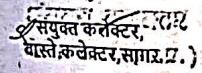 संयुक्त कलेक्टर,
वास्ते,कलेक्टर,सागर.